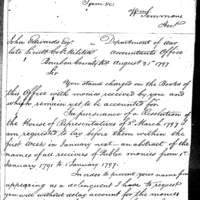 Wm Simmons
Acct
John Edwards Esqr Department of War
late Lieutt Colo Militia Accountants Office
Bourbon County Ky August 31st 1797
Sir
You stand charged on the Books of
this Office with monies received by you and
which remain yet to be accounted for
In pursuance of a Resolution of
the House of Representatives of 3d March 1797 I
am requested to lay before them within the
first week in January next an abstract of the
names of all receivers of Public monies from 1st
January 1791 to 1 January 1797.
In order to prevent your name from
appearing as a delinquent I have to request
you will without delay account for the monies